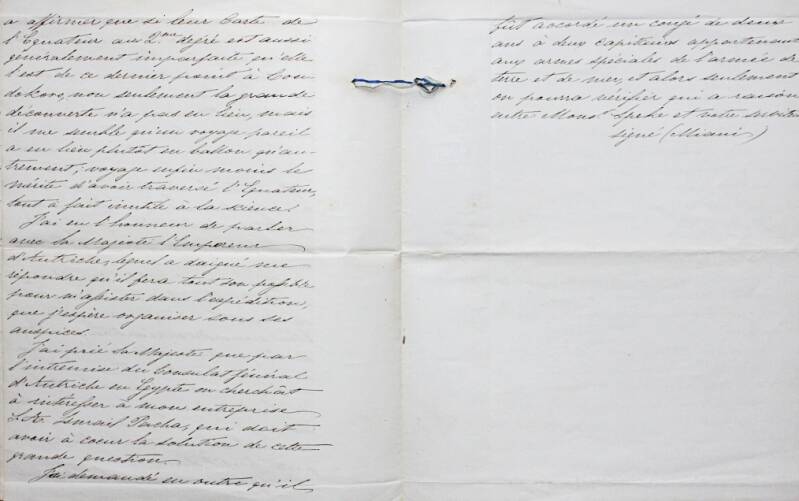 a affirmer que si leur Carte de
l'Equateur au 2.me degré est aussi
généralement imparfaite qu'elle
l'est de ce dernier point à Gon
dokoro, non seulement la grande
découverte n'a pas eu lieu, mais
il me semble qu'un voyage pareil
a eu lieu plutôt en ballon qu'au-
trement; voyage enfin moins le
mérite d'avoir traversé l'Equateur,
tout a fait inutile à la science.
J'ai eu l'honneur de parler
avec Sa Majesté l'Empereur
d'Autriche, lequel a daigné me
répondre qu'il fera tout son possible
pour m'assister dans l'expédition,
que j'espère organiser sous ses
auspices.
J'ai prié Sa Majesté que par
l'intremise du Consulat Général
d'Autriche en Egypte on cherchât
à intéresser à mon entreprise
S. A. Ismail Pacha, qui doit
avoir à coeur la solution de cette
grande question.
J'ai demandé en outre qu'il
fut accordé un congé de deux
ans à deux capitaines appartenant
aux armes spéciales de l'armée de
terre et de mer, et alors seulement
on pourra vérifier qui a raison
entre Mons. Speke et votre serviteur
signé (Miani)